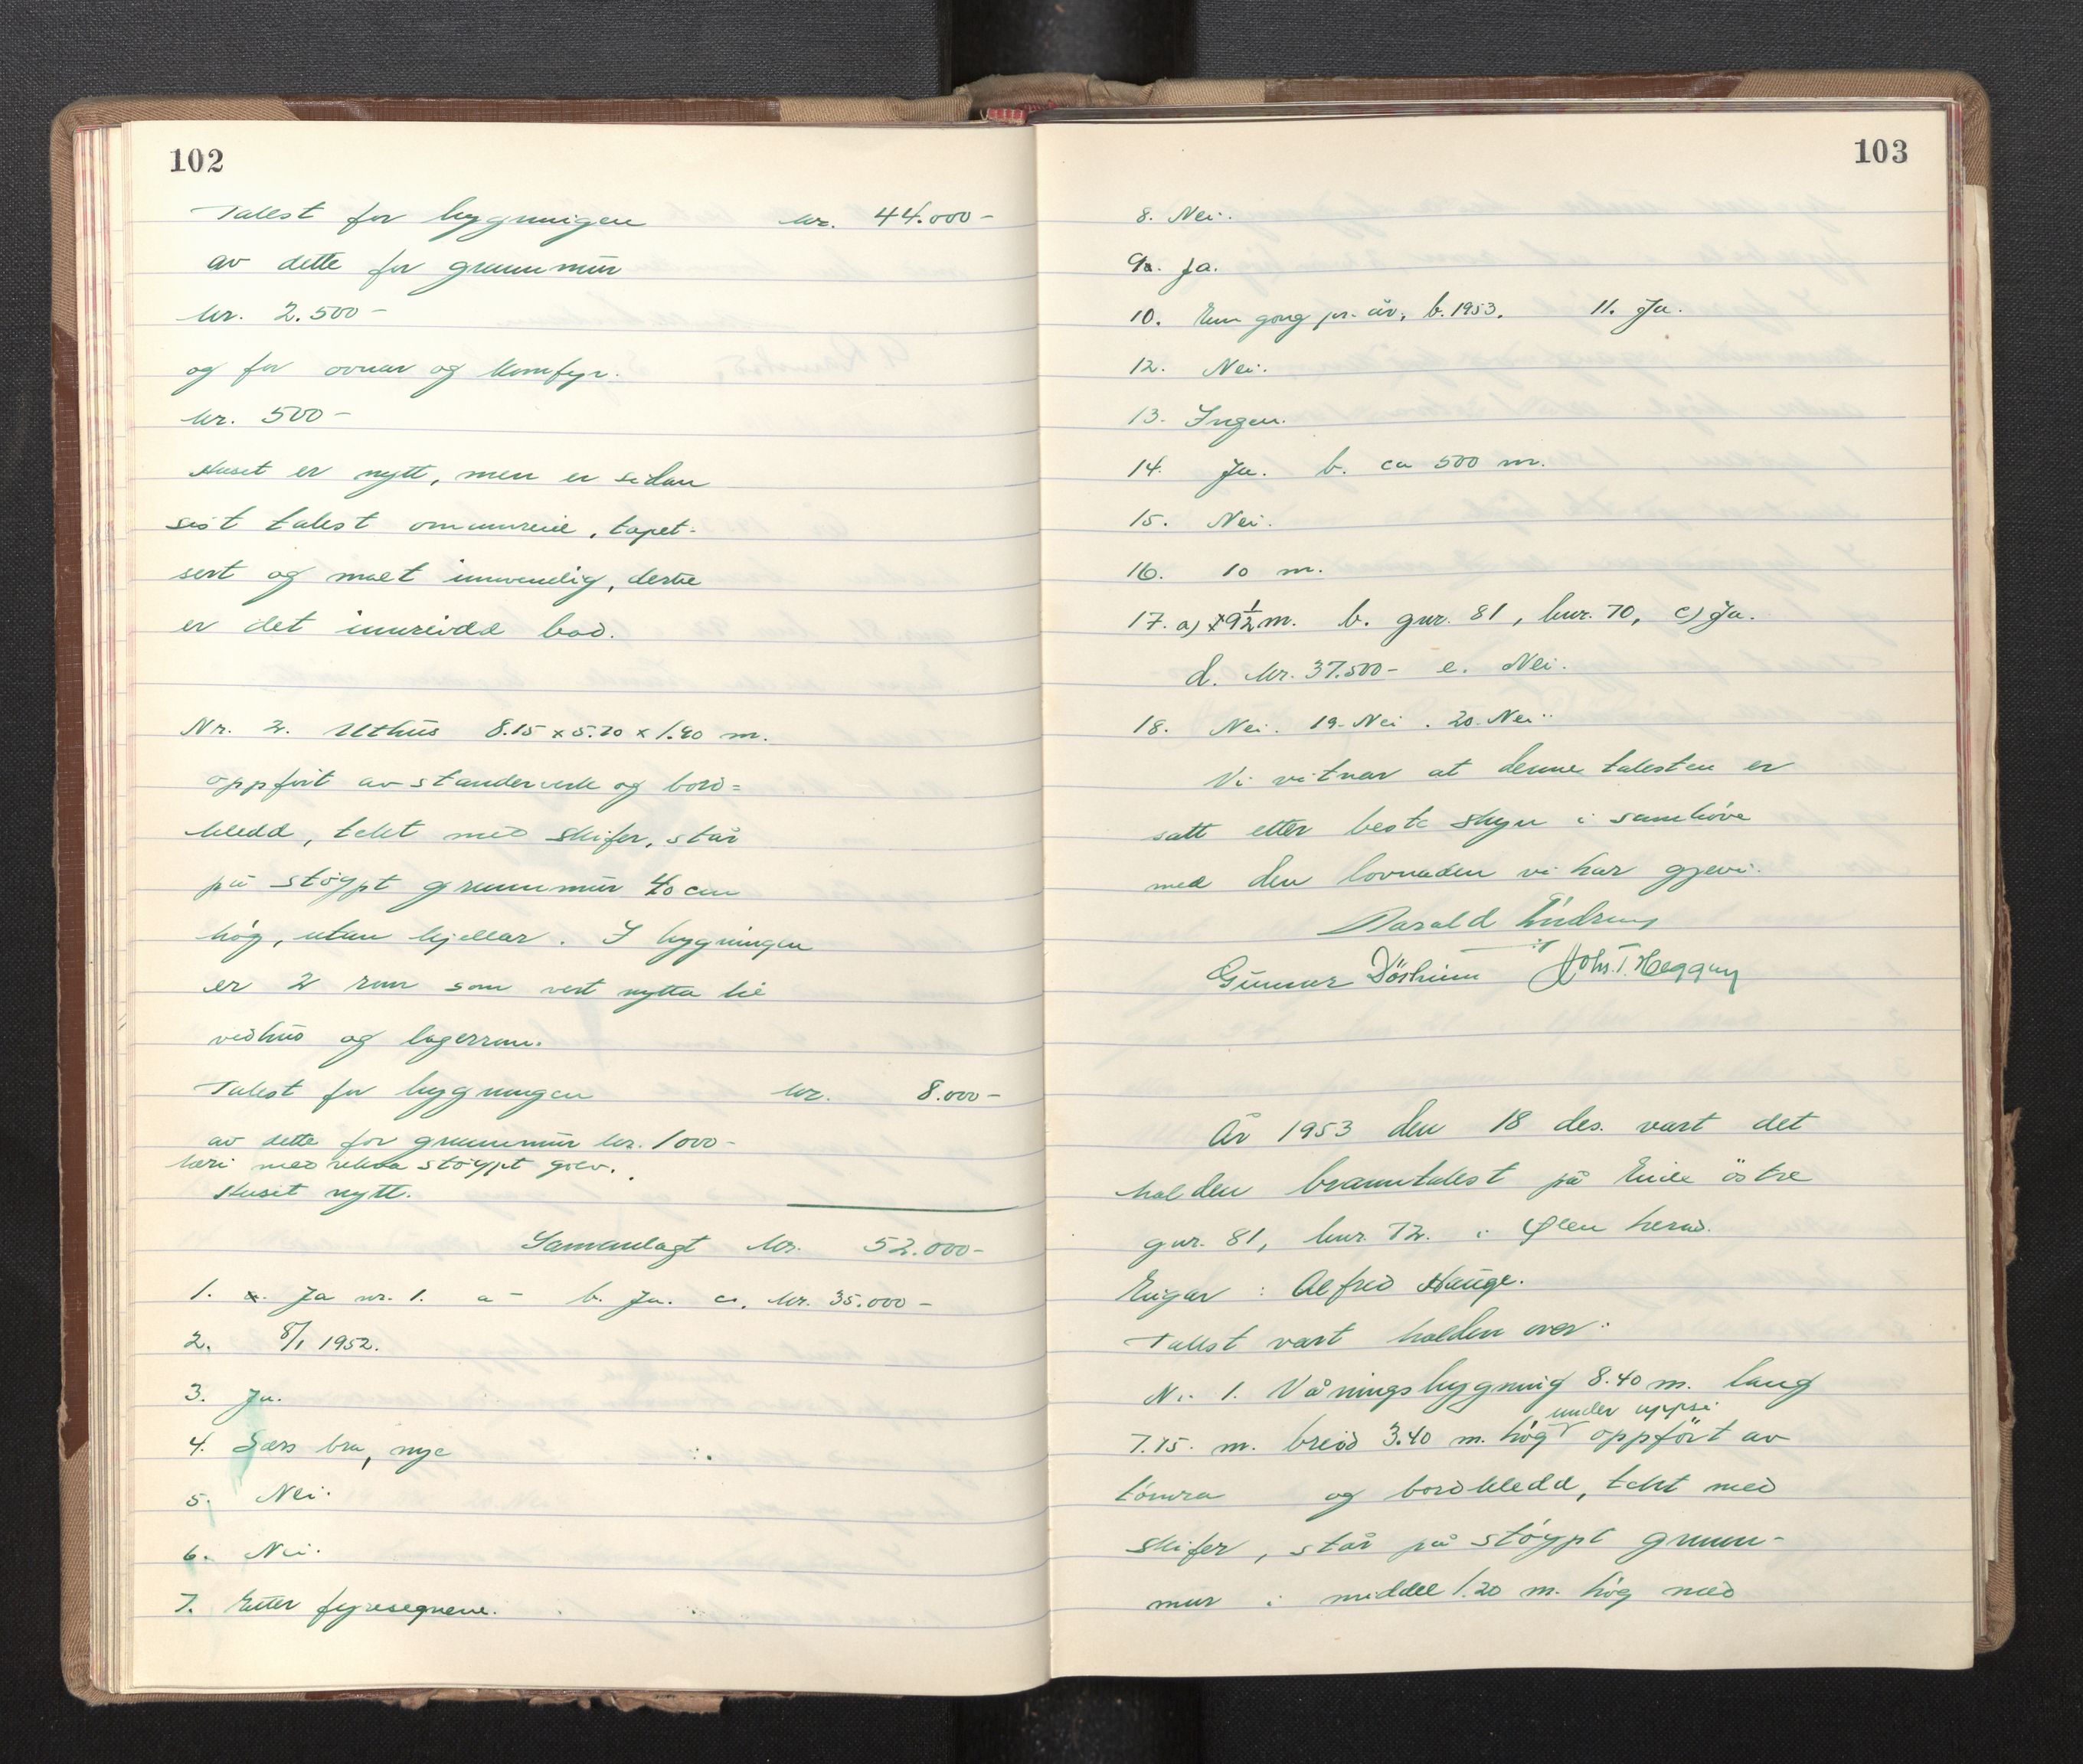 102
Takst for bygningen kr. 44.000-
av dette for grunnmur
kr. 2.500-
og for ovnar og komfyr.
kr. 500-
Huset er nytt, men er sidan
sist takst ominnreie, tapet-
sert og malt innvendig, dertil
er det innreidd bad.
Nr. 2. Uthus 8.15 x 5.20 x 1.90 m.
oppført av standerverk og bord=
kledd, tekt med skifer, står
på støypt grunnmur 40 cm
høg, utan kjellar. I bygningen
er 2 rom som vert nytta til
vedhus og lagerrom.
Takst for bygningen kr. 8.000-
av dette for grunnmur kr. 1000-
heri medrekna støypt golv.
Huset nytt.
Samanlagt kr. 52.000-
1. Ja nr. 1. a - b. Ja. c. kr. 35.000-
2. 8/1 1952.
3. Ja.
4. Særs bra, nye
5. Nei.
6. Nei.
7. Etter fyresegnene.
103
8. Nei.
9a. Ja.
10. Ein gong pr. år, b. 1953. 11. Ja.
12. Nei.
13. Ingen.
14. Ja. b. ca 500 m.
15. Nei.
16. 10 m.
17. a) 9½ m. b. gnr. 81, bnr. 70, c) Ja.
d. kr. 37.500- e. Nei.
18. Nei. 19. Nei. 20. Nei.
Vi vitnar at denne taksten er
satt etter beste skyn i samhøve
med den lovnaden vi har gjevi.
Harald
Gunnar Johs. T.
År 1953 den 18 des. vart det
halden branntakst på Eide østre
gnr. 81, bnr. 72. i Ølen herad.
Eigar: Alfred Hauge.
Takst vart halden over:
Nr. 1. Våningsbygning 8.40 m. lang
under oppsi
7.15. m. breid 3.40 m. høg oppført av
tømra og bordkledd, tekt med
skifer, står på støypt grunn-
mur i middel 1.20 m. høg med